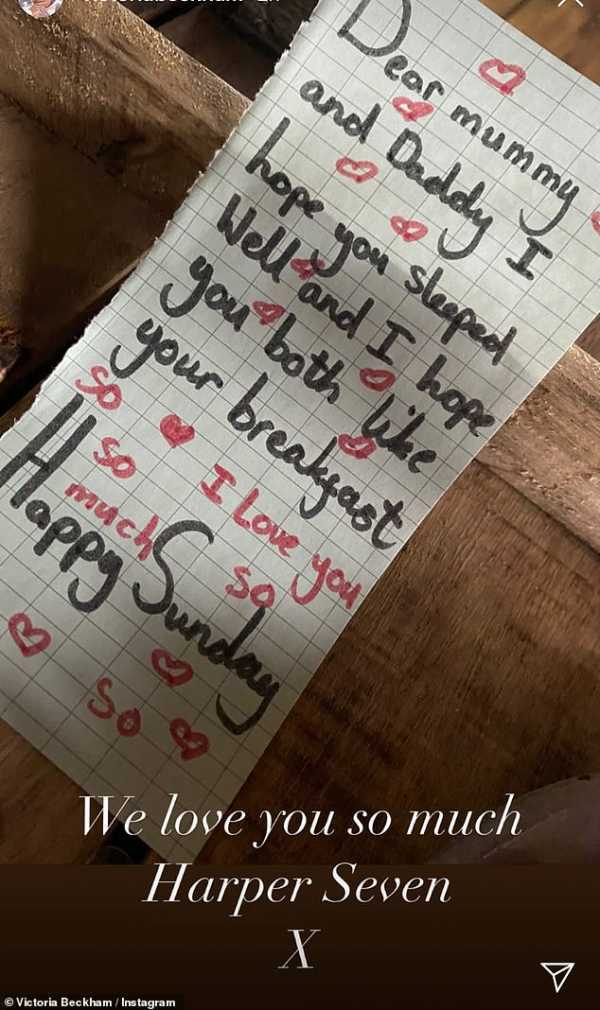 Dear mummy
and Daddy I
hope you sleeped
Well and I hope
you both like
your breakfast
so
so I Love you
much so
Happy Sunday
so
We love you so much
Harper Seven
X
© Victoria Beckham / Instagram